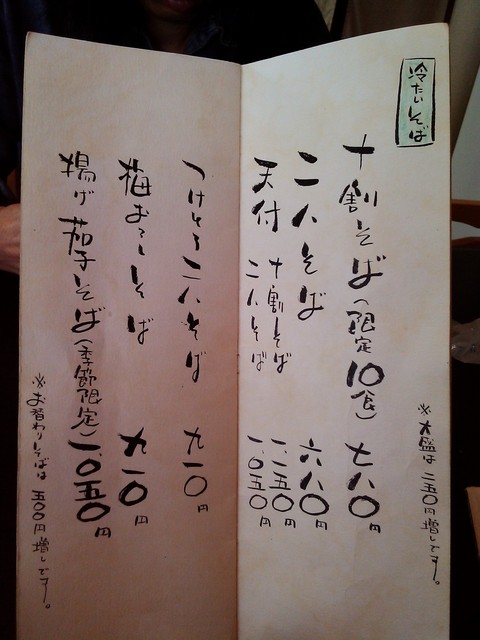 冷たいそば
※大盛は二五〇円増しです。
十割そば(限定10食) 七八〇円
二八そば 六八〇円
天付 十割そば 一、一五〇円
二八そば 一、〇五〇円
つけとろ二八そば 九一〇円
梅おろしそば 九一〇円
揚げ茄子そば(季節限定)一、〇五〇円
※お替わりそばは 五〇〇円増しです。